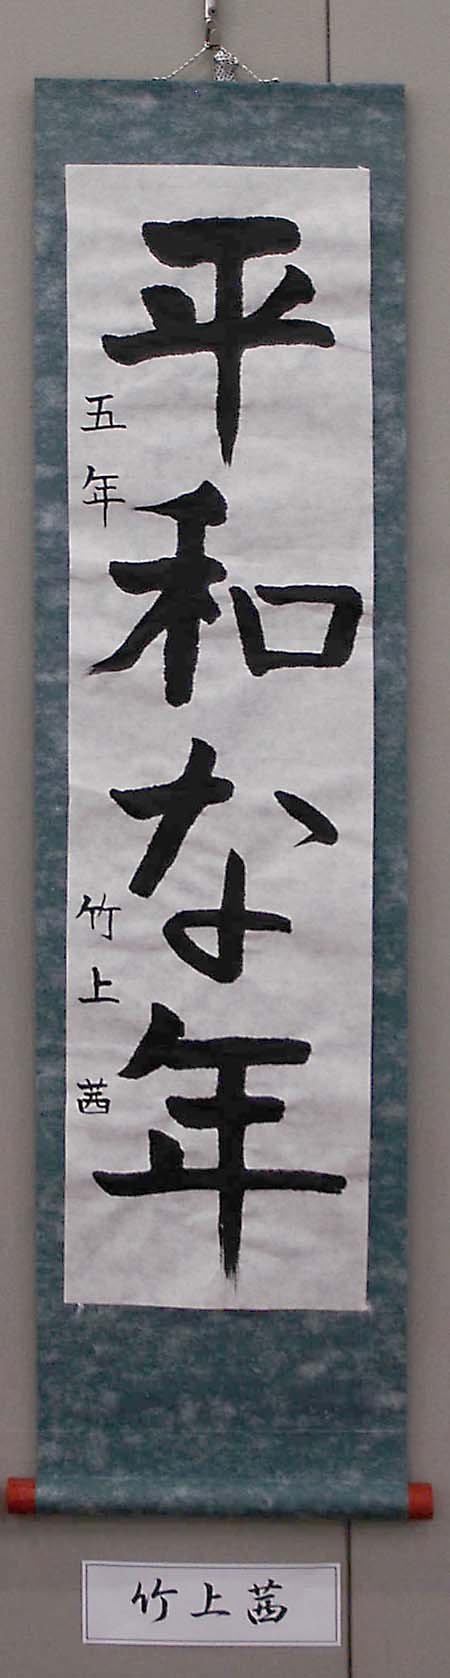 平和な年
五年 竹上 茜
竹上茜